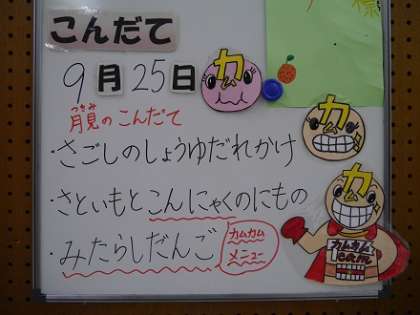 こんだて
9月25日
カム
つきみ
月見のこんだて
カム
・さごしのしょうゆだれかけ
カム
・さといもとこんにゃくのにもの
・みたらしだんご
カムカム
メニュー
カムカム
cam